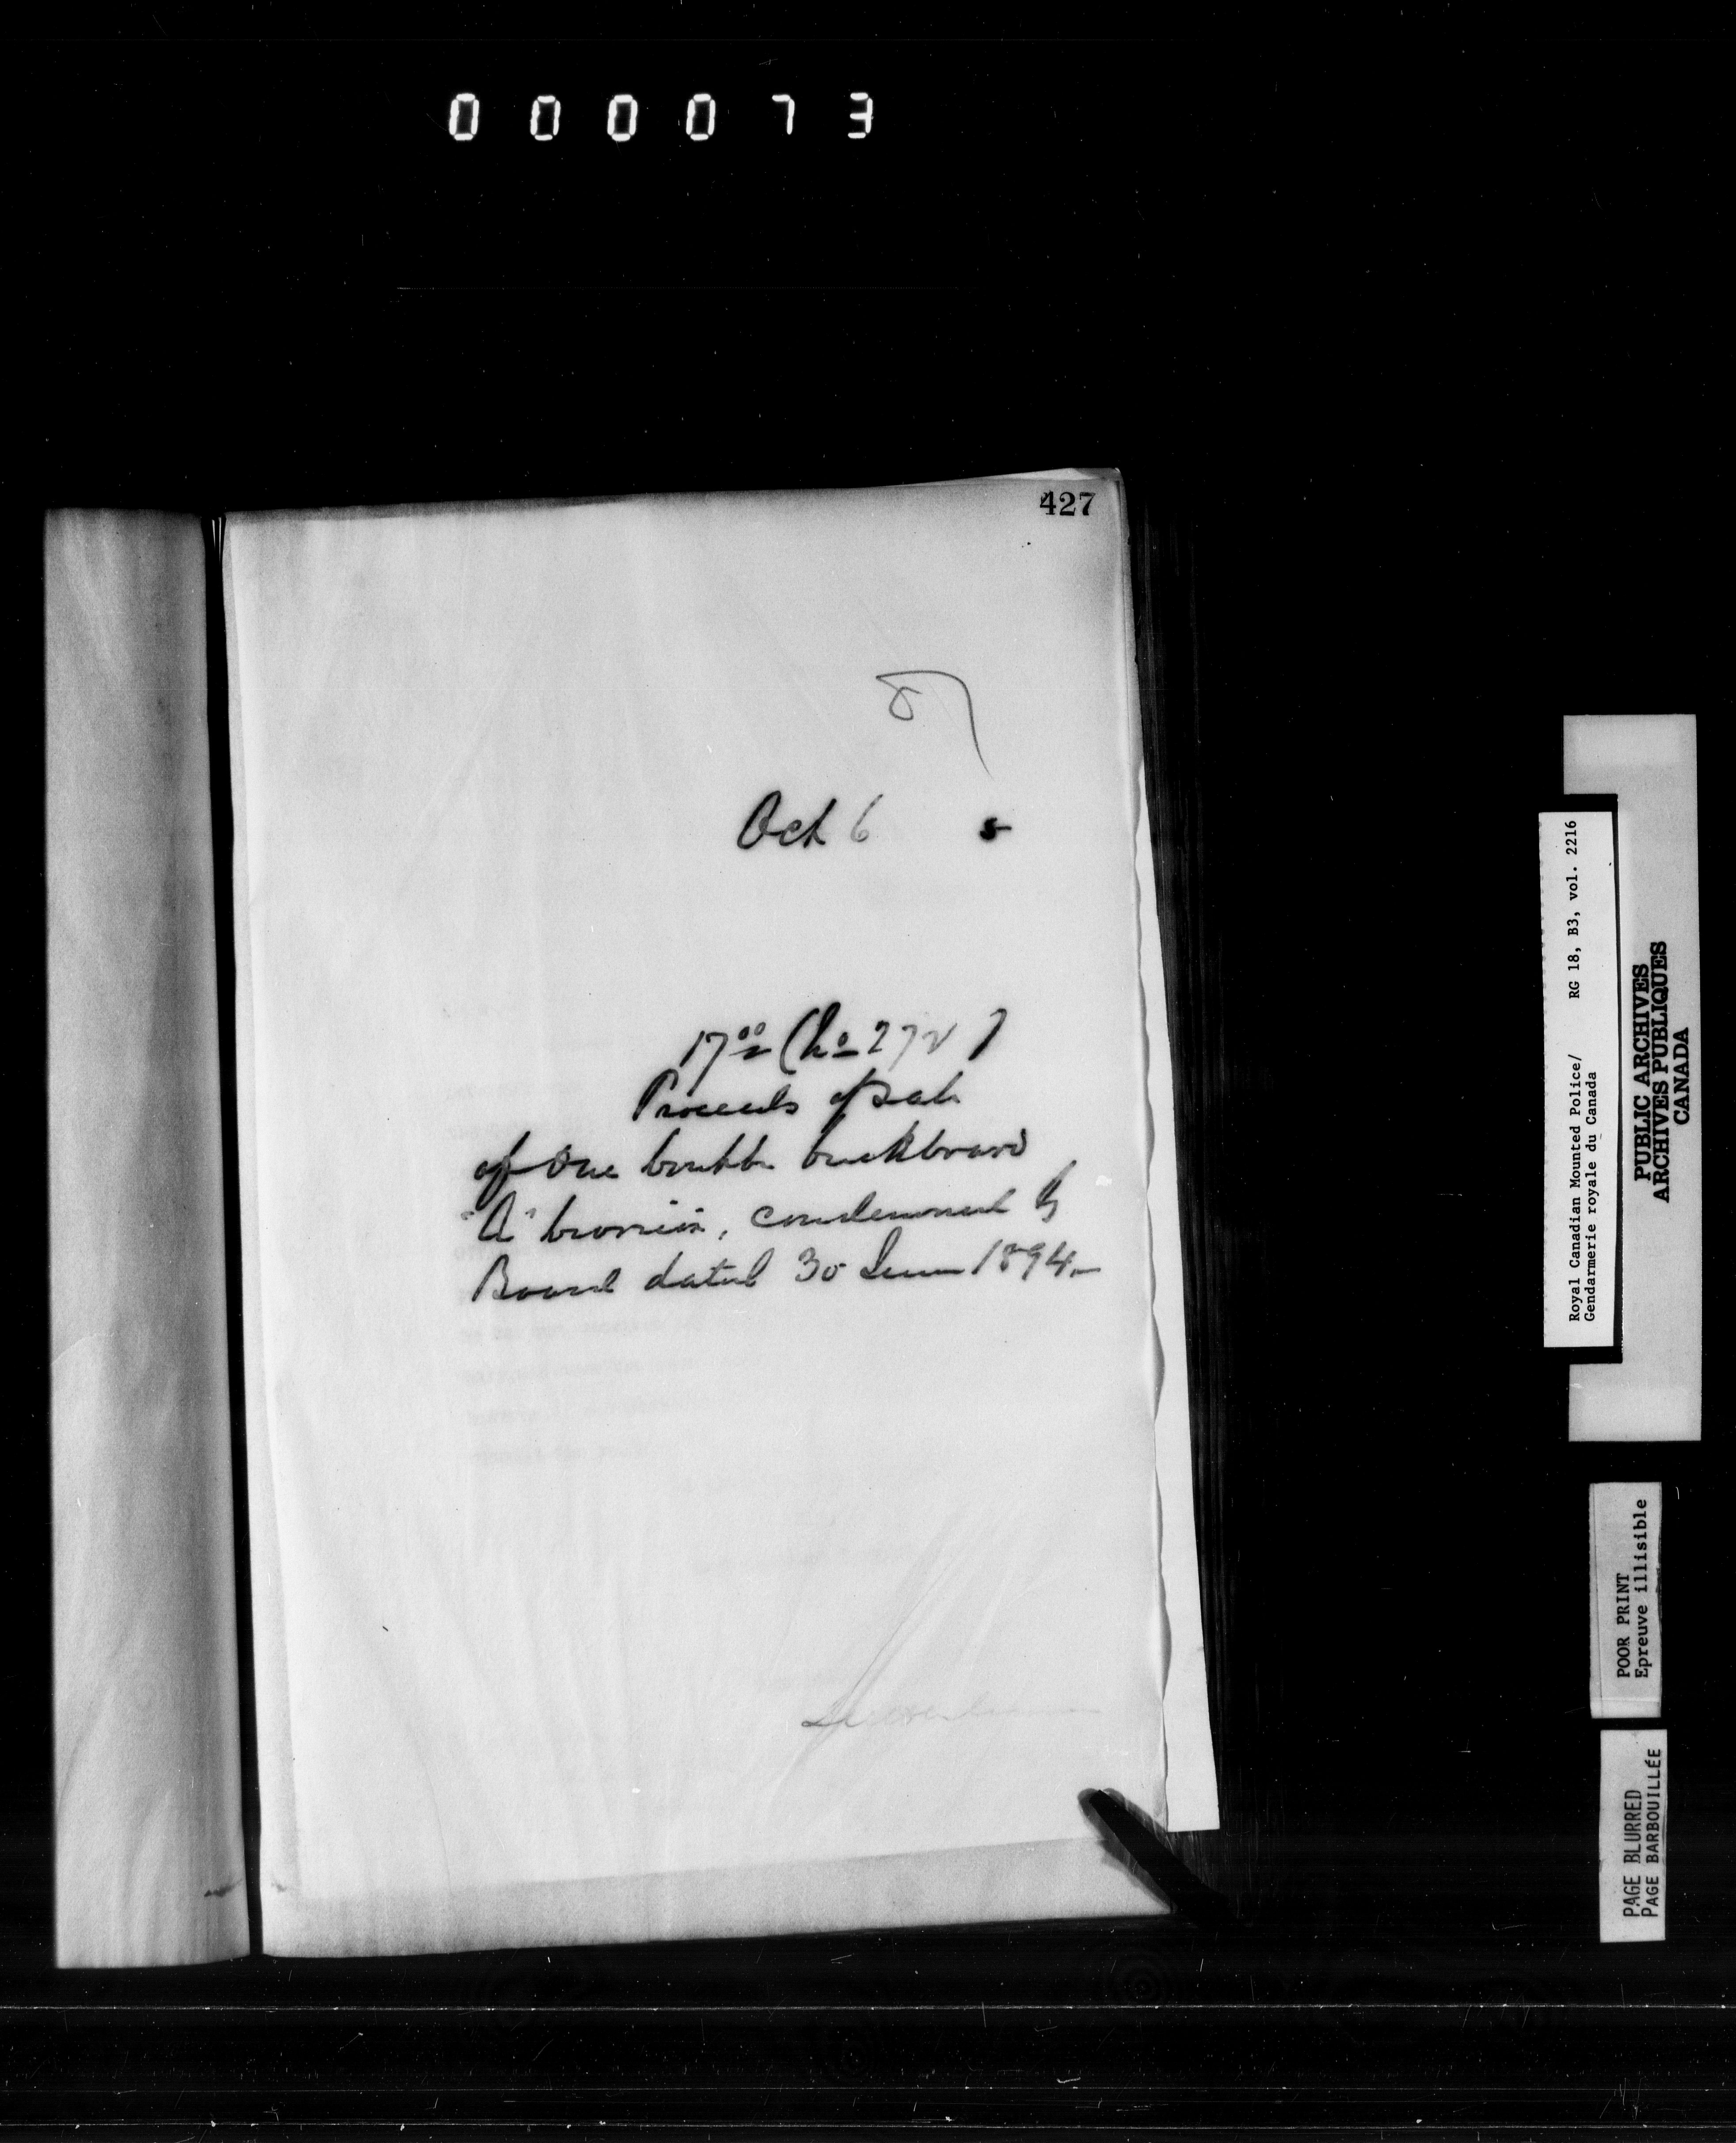 000073
427
87
Oct 6 5
17 00 (No 272)
Proceeds of sale
of one double buckboard
"A" Division, condemned by
Board dated 30 June 1894.
Royal Canadian Mounted Police/ RG 18, B3, vol. 2216
Gendarmerie royale du Canada
PUBLIC ARCHIVES
ARCHIVES PUBLIQUES
CANADA
POOR PRINT
Epreuve illisible
PAGE BLURRED
PAGE BARBOUILLÉE